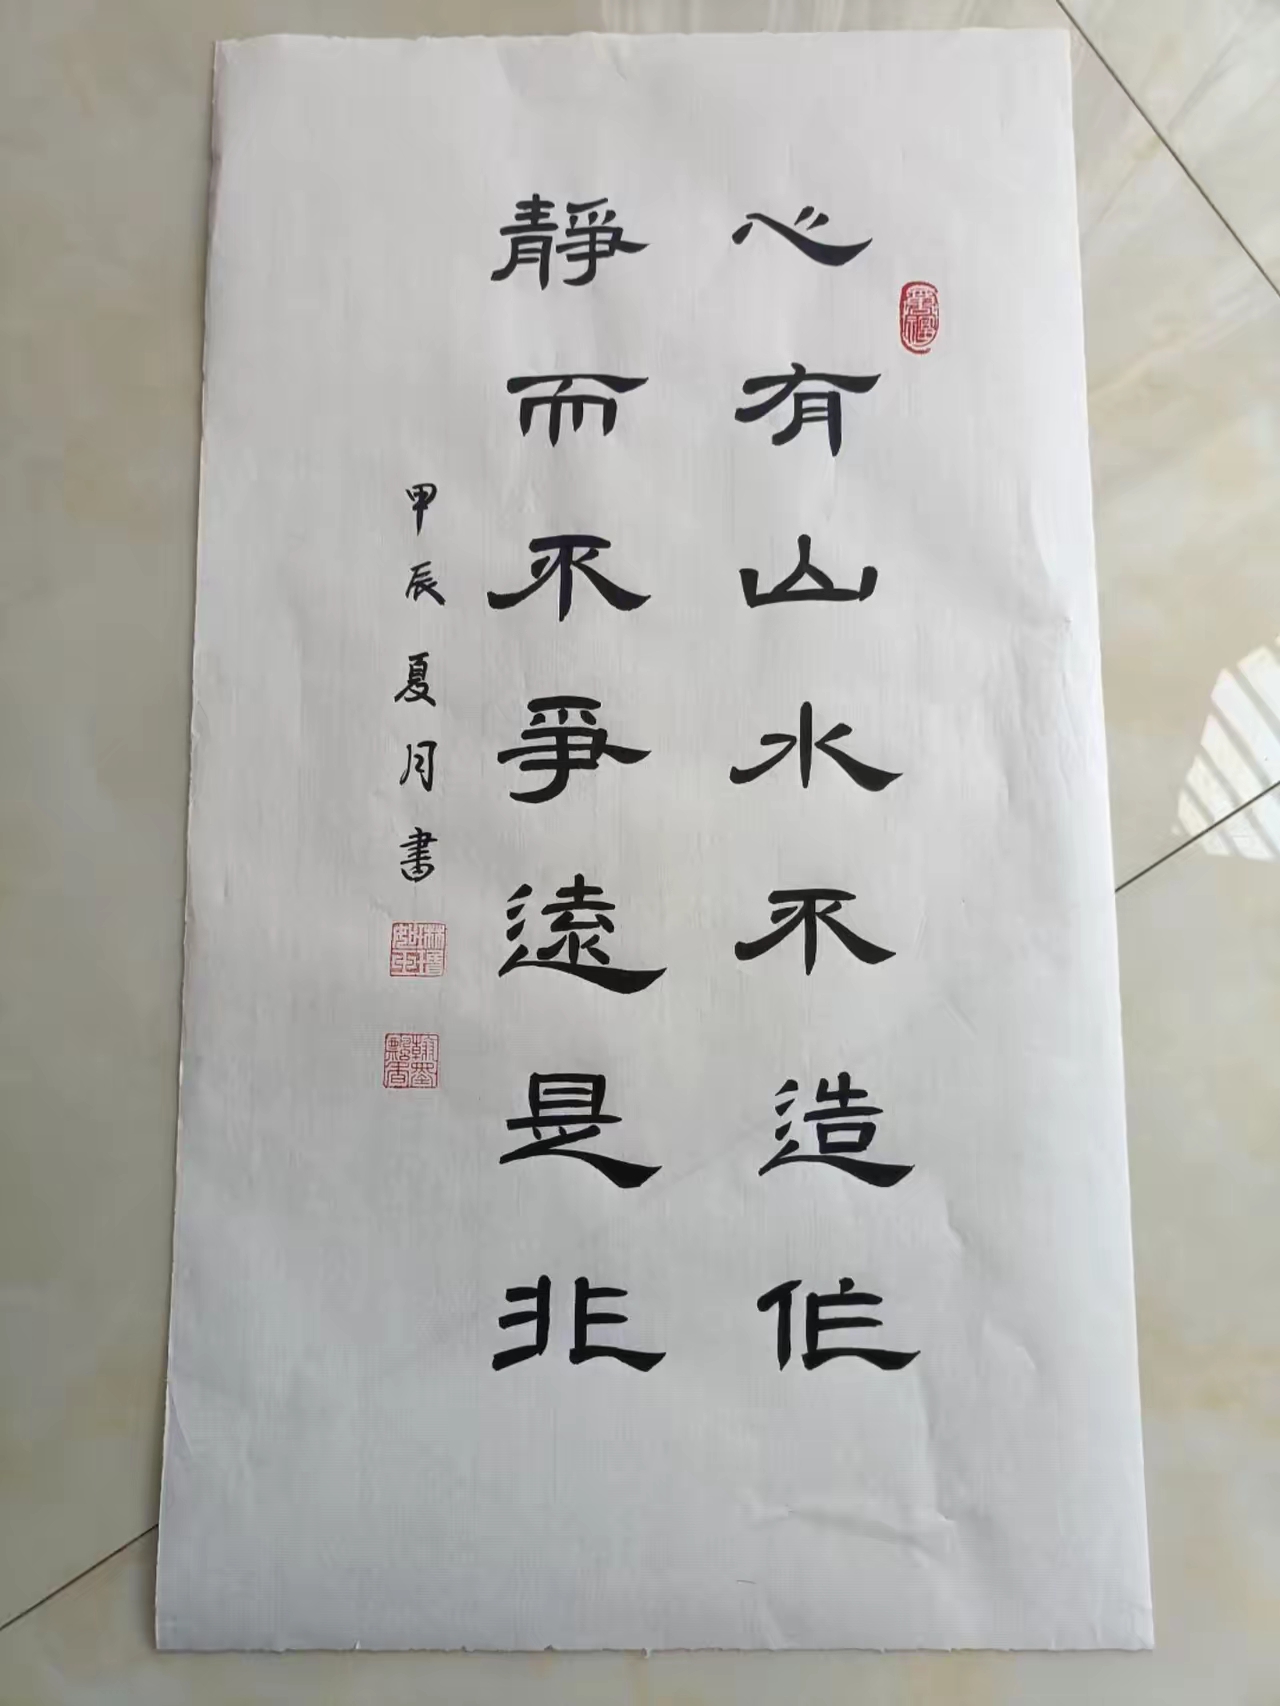 心有山水不造作
靜而不爭遠是非
甲辰夏月書
翰墨飄香